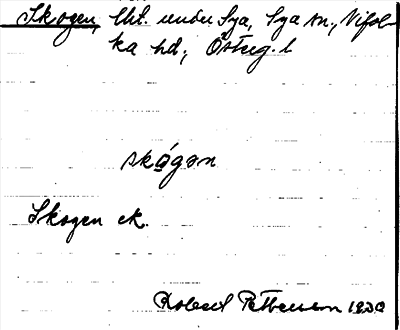 Skogen, lht. under Sya, Sya sn., Vifol-
ka hd; Österg. l
skógən
Skogen ek.
Robert Pettersson 1930